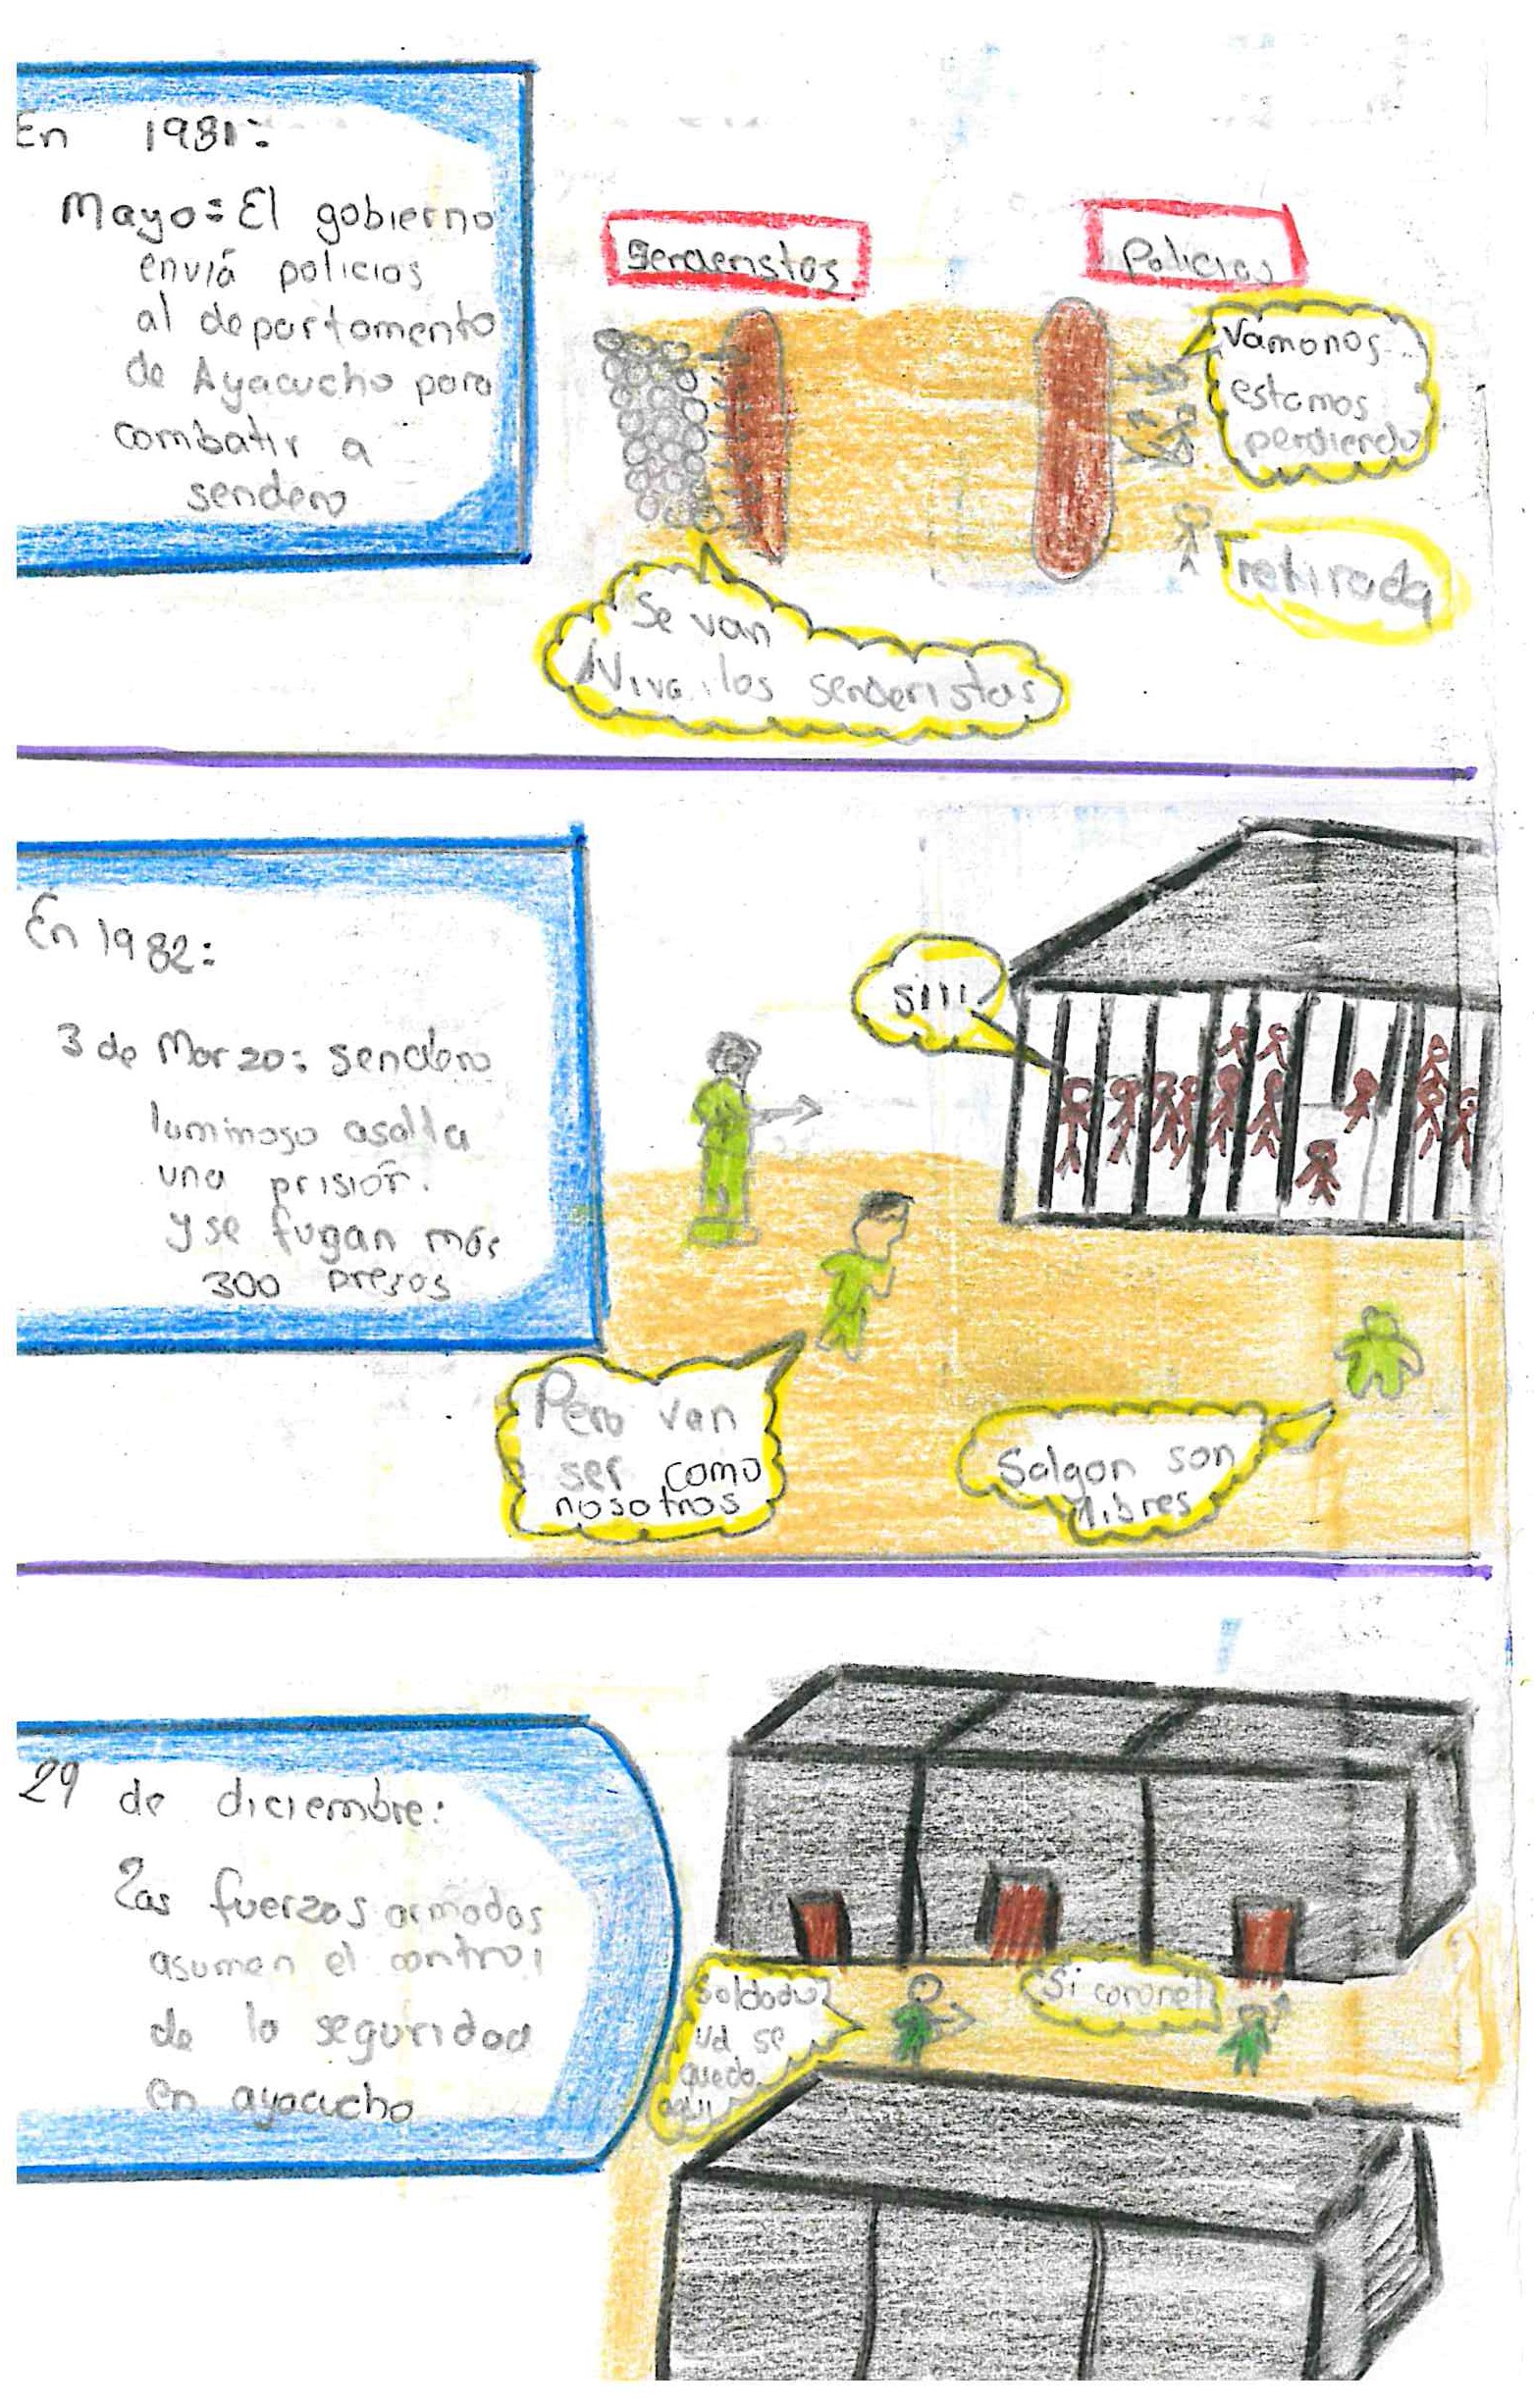 En 1981:
Mayo: El gobierno
enviá policias
al departamento
de Ayacucho para
combatir a
sendero
Senderistas
Policias
Vamonos
estamos
perdiendo
retirada
Se van
Viva los senderistas
En 1982:
3 de Marzo: sendero
luminoso asalta
una prisión.
y se fugan más
300 presos
siii
Pero van
ser como
nosotros
Salgan son
libres
29 de diciembre:
Las fuerzas armadas
asumen el control
de la seguridad
en ayacucho
Soldado
ud se
queda
aqui
Si coronel